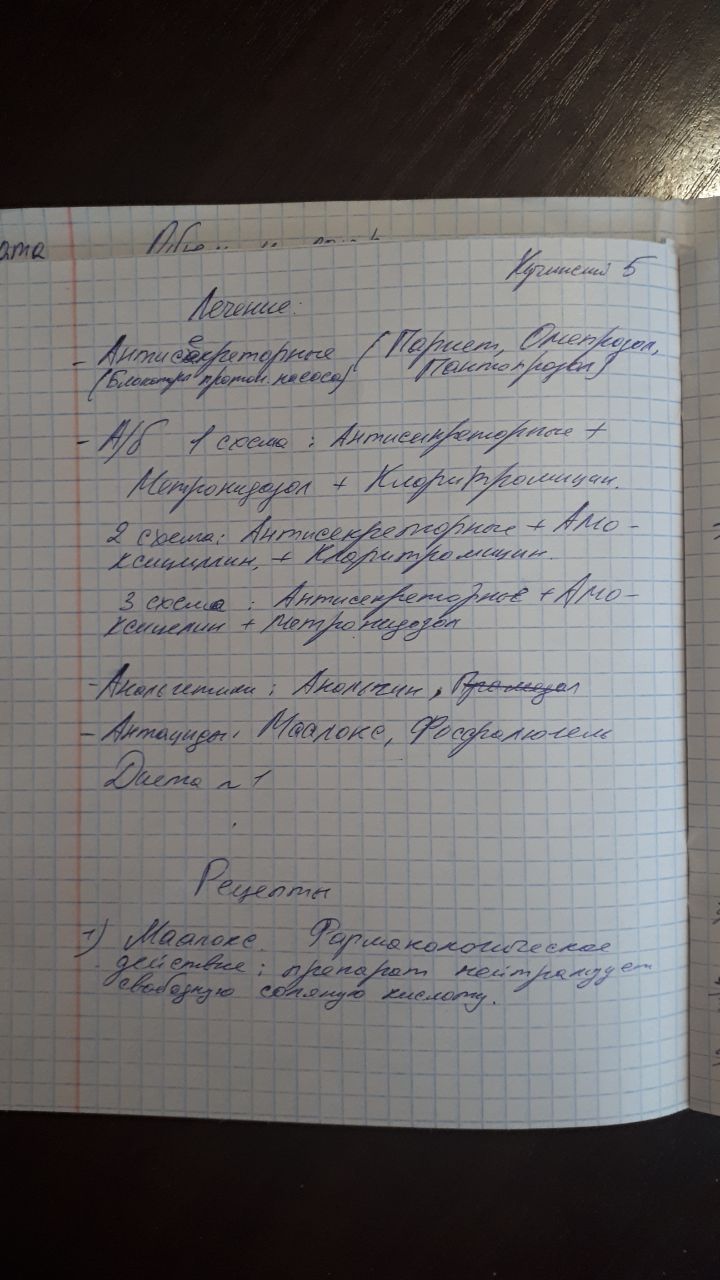 Кучинский 5
Лечение:
- Антисекреторные (Париет, Омепрозол,
(Блокаторы протон. насоса) Пантопрозол)
- А/б 1 схема: Антисекреторные +
Метронидазол + Кларитромицин.
2 схема: Антисекреторные + Амо-
ксициллин, + Кларитромицин.
3 схема: Антисекреторные + Амо-
ксицелин + Метронидазол
- Анальгетики: Анальгин, Промедол
- Антациды: Маалокс, Фосфалюгель
Диета ~ 1
Рецепты
1) Маалокс. Фармакологическое
действие: препарат нейтрализует
свободную соляную кислоту.